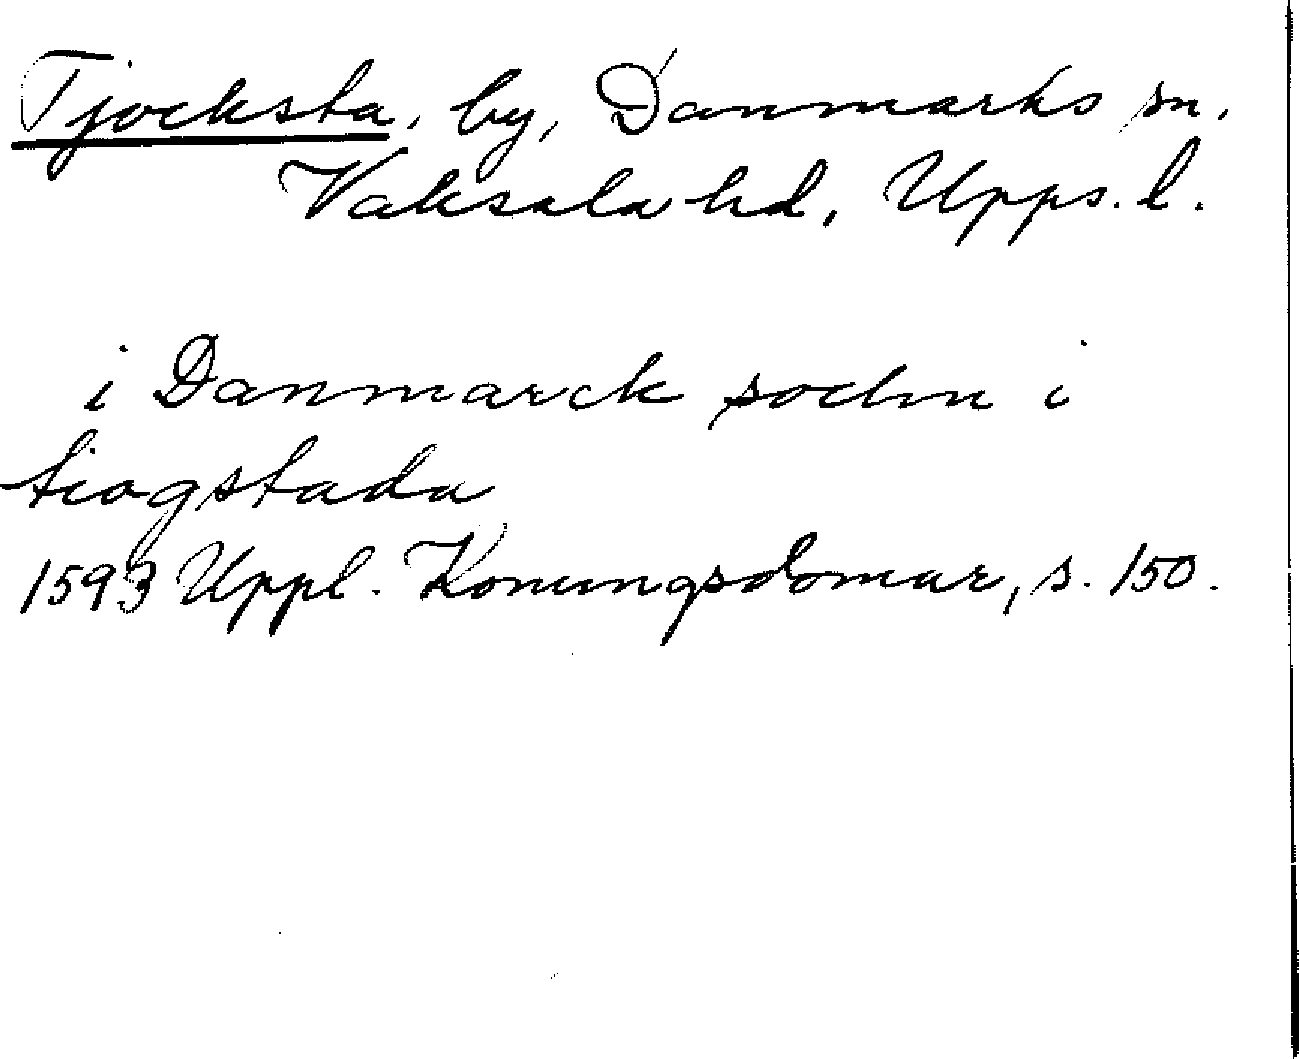 Tjocksta, by, Danmarks sn,
Vaksala hd, Upps. l.
i Danmarck sochn i
tiogstada
1593 Uppl. Konungsdomar, s. 150.